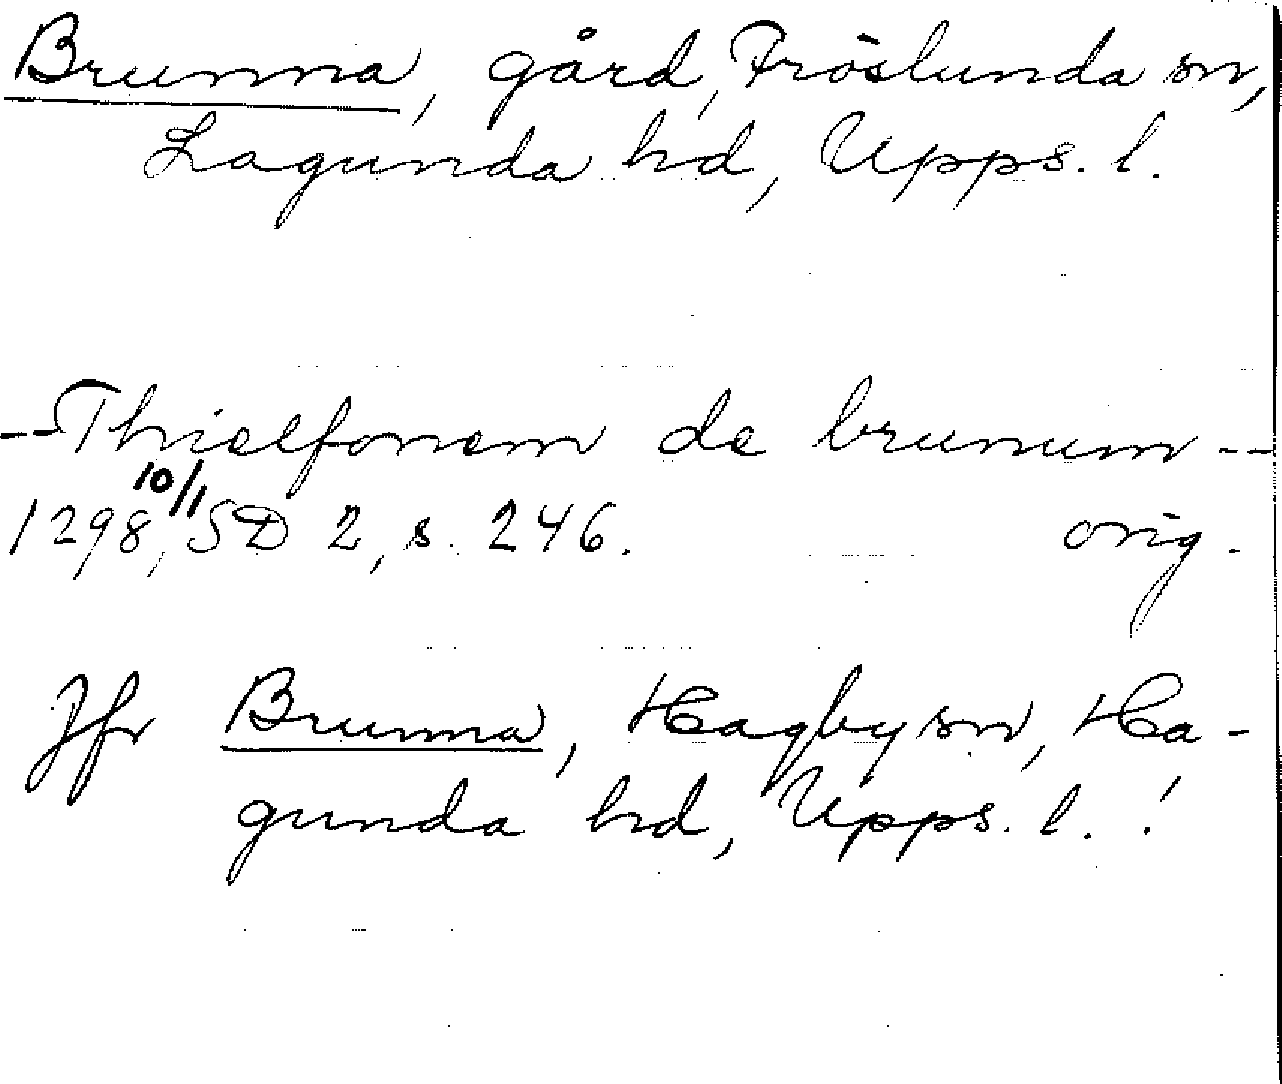 Brunna, gård, Fröslunda sn,
Lagunda hd, Upps. l.
--Thielfonem de brunum--
1298 10/1, SD 2, s. 246. orig.
Jfr Brunna, Hagby sn, Ha-
gunda hd, Upps. l. !